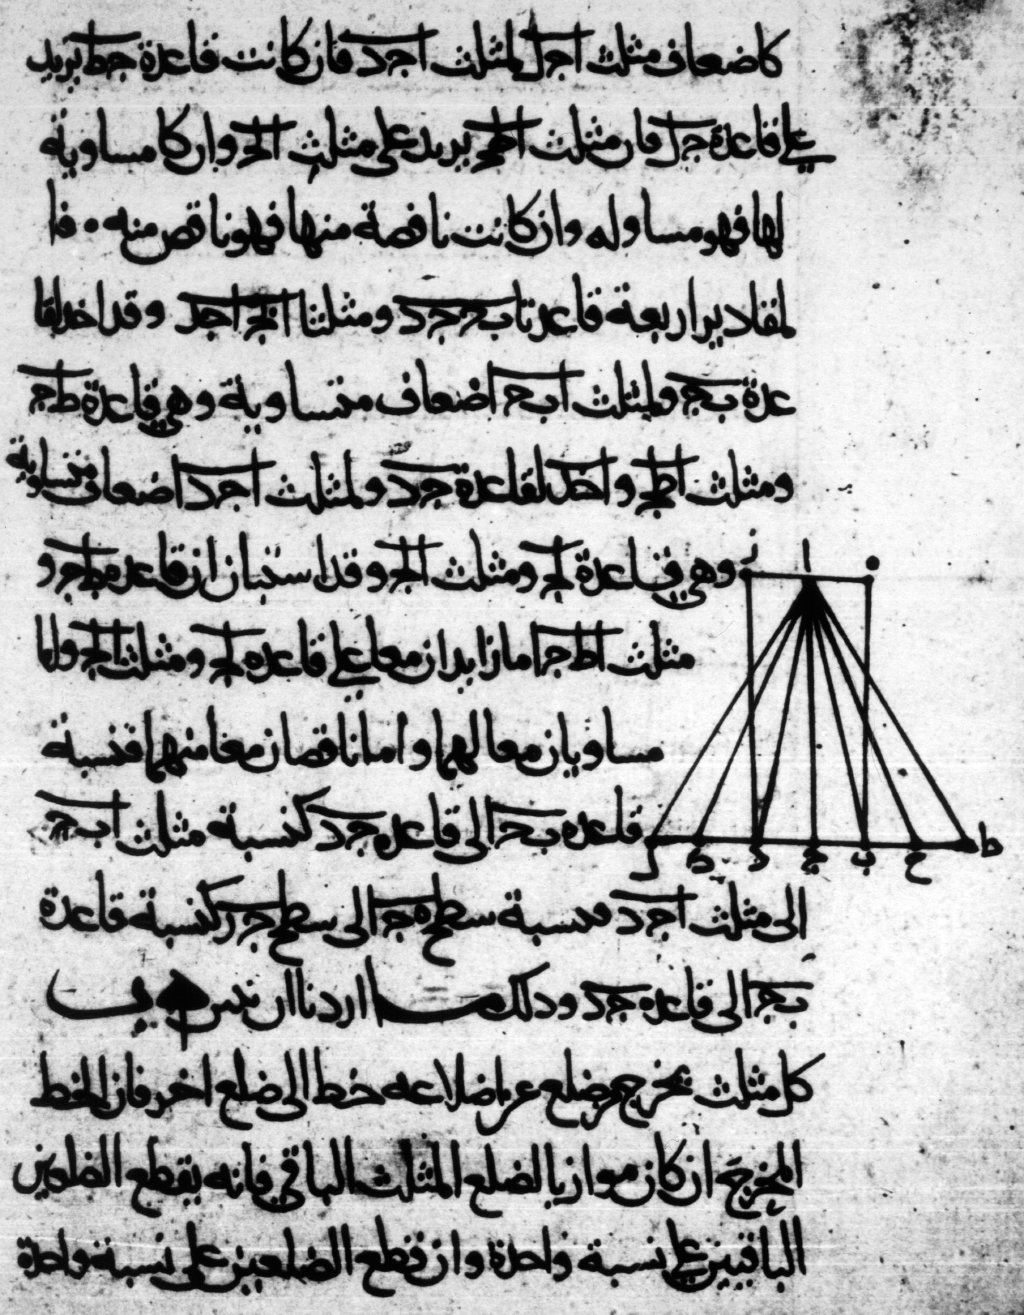 كاضعاف مثلث اجل لمثلث اجد فان كانت قاعدة جط يزيد
على قاعدة جل فان مثلث اطج يزيد على مثلث الج وان كا مساوية
لها فهو مساو له وان كانت ناقصة منها فهو ناقص منه فا
لمقادير اربعة قاعدتا بج جد ومثلثا ابج اجد وقد اخذ لقا
عدة بج ولمثلث ابج اضعاف متساوية وهي قاعدة طج
ومثلث اطج واخذ لقاعدة جد ولمثلث اجد اضعاف متساوية
وهي قاعدة لج ومثلث الج وقد استبان ان قاعدة طج و
مثلث اطج اما زايدان معا على قاعدة لج ومثلث الج واما
مساويان معا لهما واما ناقصان معا منهما فنسبة
قاعدة بج الى قاعدة جد كنسبة مثلث ابج
الى مثلث اجد فنسبة سطح ه ج الى سطح جز كنسبة قاعدة
بج الى قاعدة جد وذلك ما اردنا ان نبين ب
كل مثلث يخرج من ضلع من اضلاعه خط الى ضلع اخر فان الخط
المخرج ان كان موازيا لضلع المثلث الباقي فانه يقطع الضلعين
الباقيين على نسبة واحدة وان قطع الضلعين على نسبة واحدة
ز ا ه
ل ك د ج ب ح ط